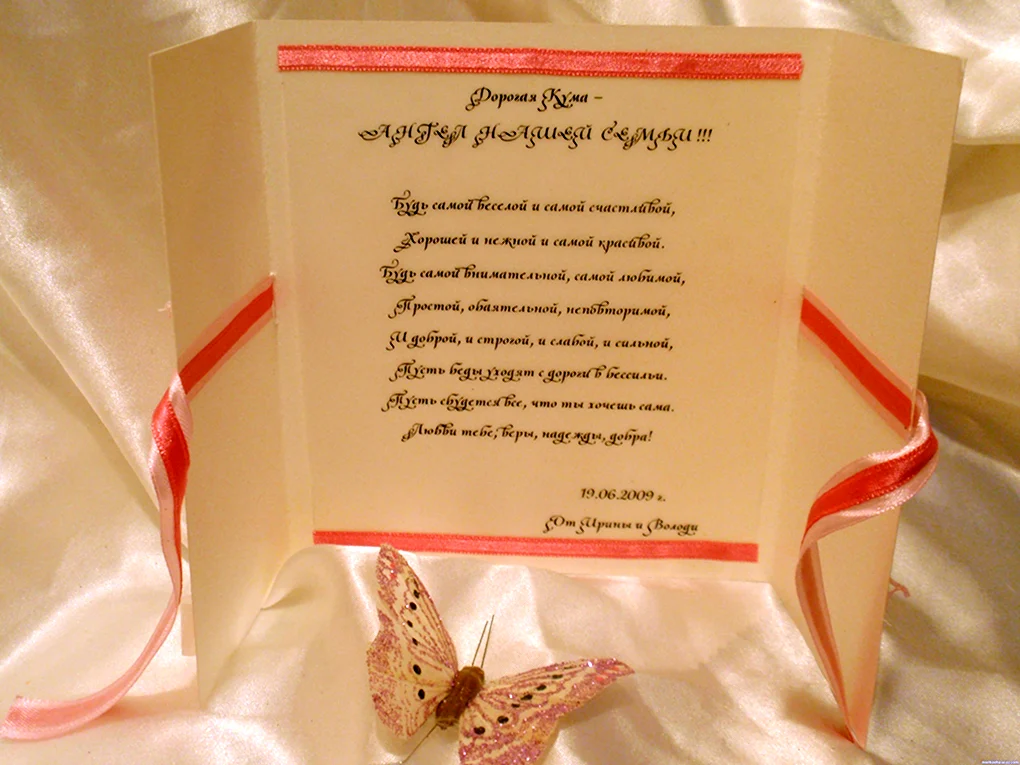 Дорогая Кума –
АНГЕЛ НАШЕЙ СЕМЬИ !!!
Будь самой веселой и самой счастливой,
Хорошей и нежной и самой красивой.
Будь самой внимательной, самой любимой,
Простой, обаятельной, неповторимой,
И доброй, и строгой, и слабой, и сильной,
Пусть беды уходят с дороги в бессильи.
Пусть сбудется все, что ты хочешь сама.
Любви тебе, веры, надежды, добра!
19.06.2009 г.
От Ирины и Володи